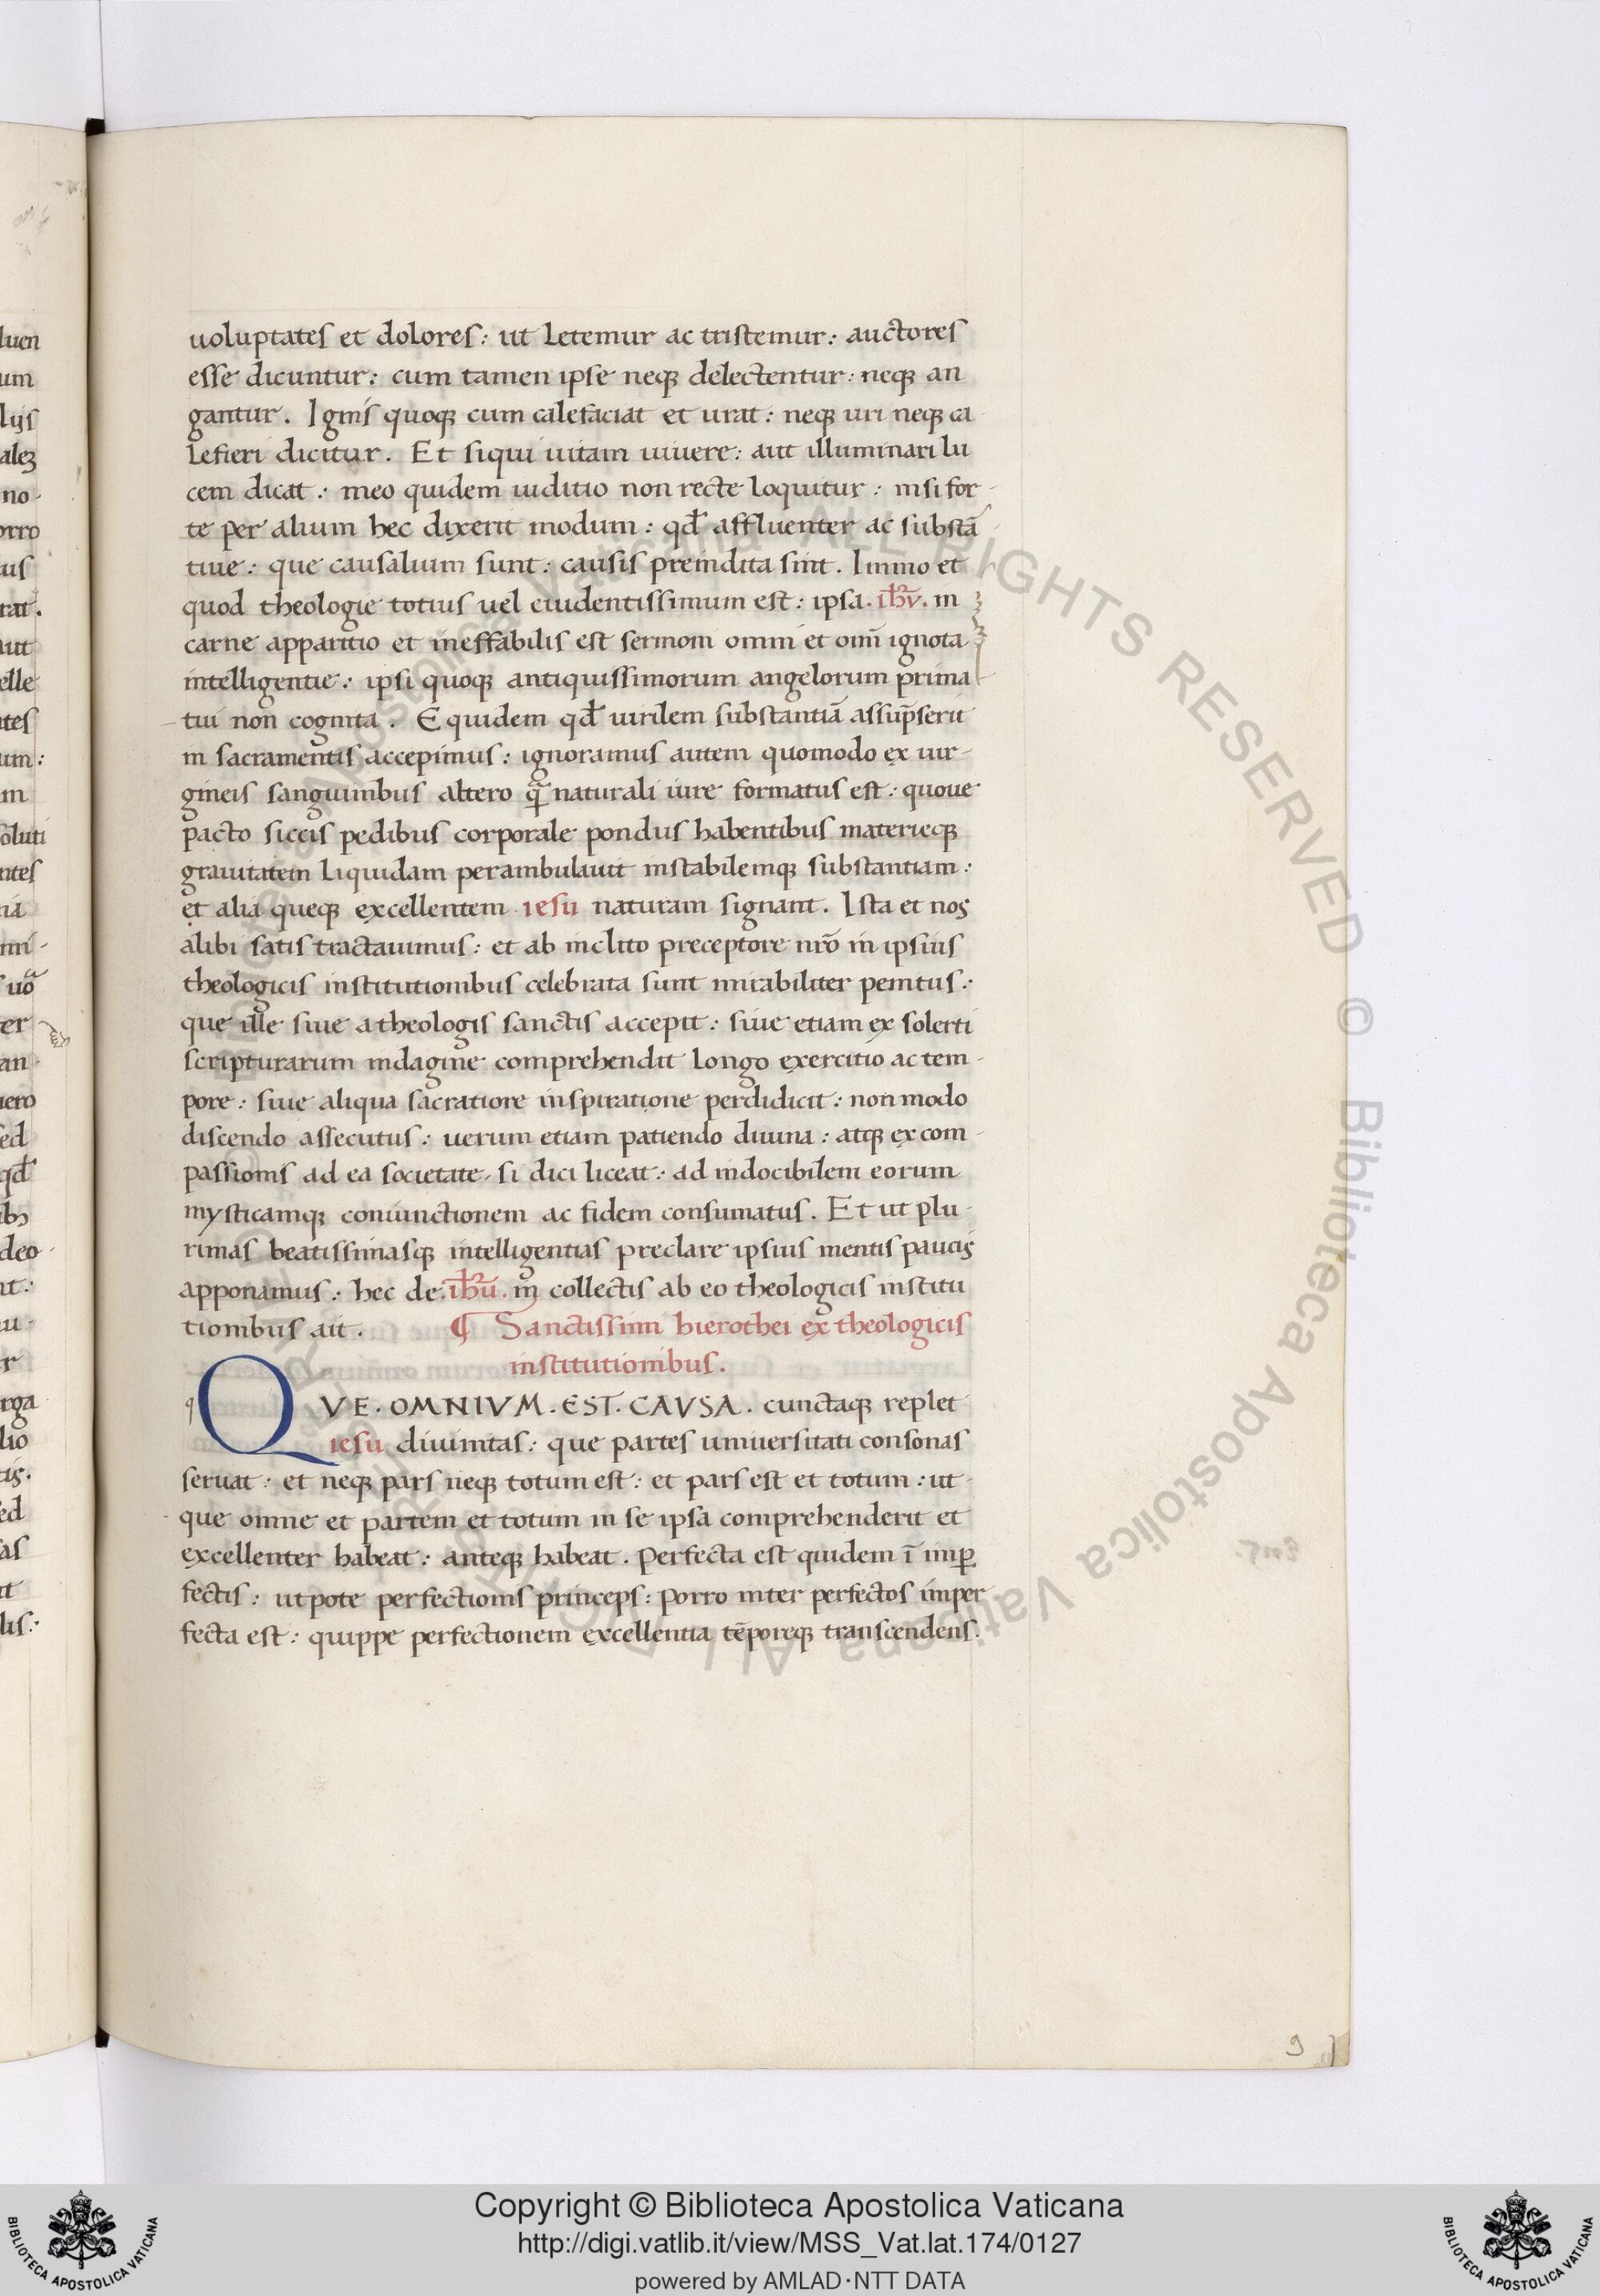 uoluptates et dolores: ut letemur ac tristemur: auctores
esse dicuntur: cum tamen ipse neqꝫ delectentur: neqꝫ an
gantur. Ignis quoqꝫ cum calefaciat et urat: neqꝫ uri neqꝫ ca
lefieri dicitur. Et siqui uitam uiuere: aut illuminari lu
cem dicat: meo quidem iuditio non recte loquitur: nisi for-
te per alium hec dixerit modum: qđ affluenter ac substā
tiue: que causaluum sunt: causis preindita sint. Immo et
quod theologie totius uel euidentissimum est: ipsa .ihv̄. in
carne apparitio et ineffabilis est sermoni omni et oīni ignota
intelligentie: ipsi quoqꝫ antiquissimorum angelorum prima
tui non cognita. Equidem qđ uirilem substantiā assūpserit
in sacramentis accepimus: ignoramus autem quomodo ex uir-
gineis sanguinibus altero q̄ naturali iure formatus est: quoue
pacto siccis pedibus corporale pondus habentibus materieqꝫ
grauitatem liquidam perambulauit instabilemqꝫ substantiam:
et alia queqꝫ excellentem iesu naturam signant. Ista et nos
alibi satis tractauimus: et ab inclito preceptore nr̄o in ipsius
theologicis institutionibus celebrata sunt mirabiliter penitus:
que ille siue a theologis sanctis accepit: siue etiam ex solerti
scripturarum indagine comprehendit longo exercitio ac tem-
pore: siue aliqua sacratiore inspiratione perdidicit: non modo
discendo assecutus: uerum etiam patiendo diuina: atqꝫ ex com-
passionis ad ea societate, si dici liceat: ad indocibilem eorum
mysticamqꝫ coniunctionem ac fidem consumatus. Et ut plu-
rimas beatissimasqꝫ intelligentias preclare ipsius mentis paucis
apponamus: hec de .ihū. in collectis ab eo theologicis institu
tionibus ait. ¶ Sanctissimi hierothei ex theologicis
institutionibus.
QVE. OMNIVM. EST. CAVSA. cunctaqꝫ replet
iesu diuinitas: que partes uniuersitati consonas
seruat: et neqꝫ pars neqꝫ totum est: et pars est et totum: ut
que omne et partem et totum in se ipsa comprehenderit et
excellenter habeat: anteqꝫ habeat. Perfecta est quidem ī imꝑ
fectis: utpote perfectionis princeps: Porro inter perfectos imper
fecta est: quippe perfectionem excellentia tēporeqꝫ transcendens.
Copyright © Biblioteca Apostolica Vaticana
http://digi.vatlib.it/view/MSS_Vat.lat.174/0127
powered by AMLAD·NTT DATA